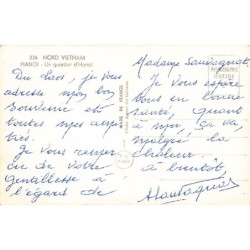 334 NORD VIETNAM
HANOI - Un quartier d'Hanoï
Du Laos, je vous
adresse mon bon
souvenir et
toutes mes amitiés.
Je vous remercie
de votre
gentillesse à
l'égard de
MADE IN FRANCE
Madame Sauvagnat,
Je vous espère
tous en bonne
santé, quant
à moi, ça va,
malgré la
chaleur.
à bientôt,